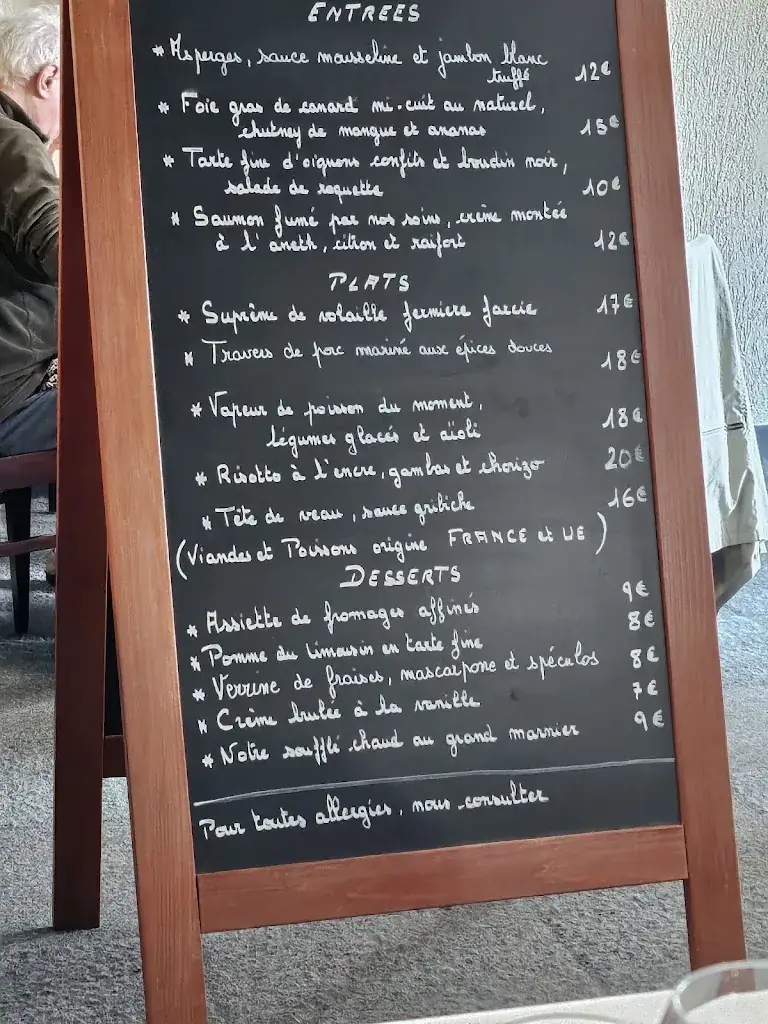 ENTREES
* Asperges, sauce mousseline et jambon blanc
truffé 12€
* Foie gras de canard mi-cuit au naturel,
chutney de mangue et ananas 15€
* Tarte fine d'oignons confits et boudin noir,
salade de roquette 10€
* Saumon fumé par nos soins, crème montée
à l'aneth, citron et raifort 12€
PLATS
* Suprême de volaille fermière farcie 17€
* Travers de porc mariné aux épices douces 18€
* Vapeur de poisson du moment,
légumes glacés et aïoli 18€
* Risotto à l'encre, gambas et chorizo 20€
* Tête de veau, sauce gribiche 16€
(Viandes et Poissons origine FRANCE et UE)
DESSERTS
* Assiette de fromages affinés 9€
* Pomme du limousin en tarte fine 8€
* Verrine de fraises, mascarpone et spéculos 8€
* Crème brulée à la vanille 7€
* Notre soufflé chaud au grand marnier 9€
Pour toutes allergies, nous consulter